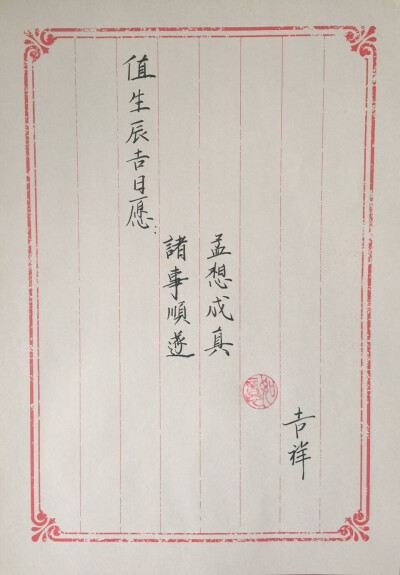 值生辰吉日愿：
諸事順遂
孟想成真
吉祥